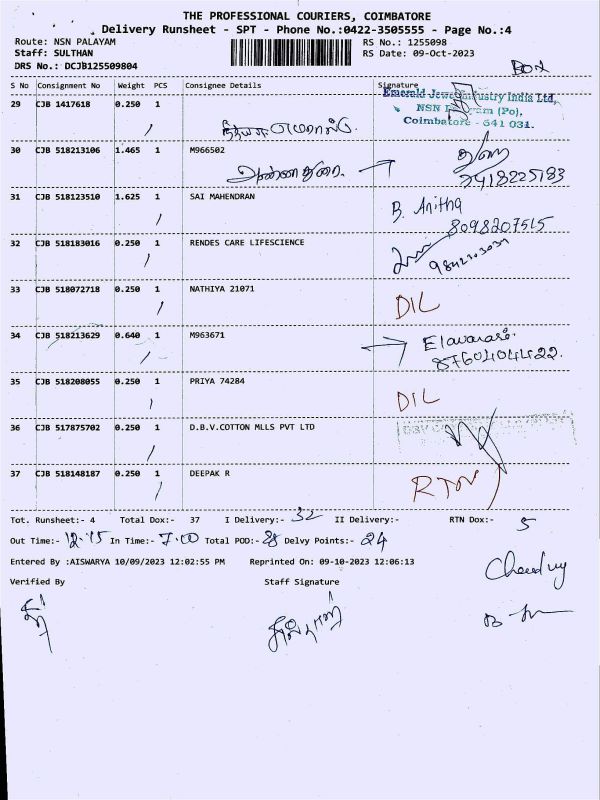 THE PROFESSIONAL COURIERS, COIMBATORE
Delivery Runsheet - SPT - Phone No.:0422-3505555 - Page No.:4
Route: NSN PALAYAM RS No.: 1255098
Staff: SULTHAN RS Date: 09-Oct-2023
DRS No.: DCJB125509804
BOX
S No Consignment No Weight PCS Consignee Details Signature
29 CJB 1417618 0.250 1
Emerald Jewel Industry India Ltd,
NSN Palayam (Po),
Coimbatore - 641 031.
30 CJB 518213106 1.465 1 M966502
31 CJB 518123510 1.625 1 SAI MAHENDRAN B. Anitha
8098207515
32 CJB 518183016 0.250 1 RENDES CARE LIFESCIENCE
33 CJB 518072718 0.250 1 NATHIYA 21071 DIL
34 CJB 518213629 0.640 1 M963671 Elavarasi.
8760404422.
35 CJB 518208055 0.250 1 PRIYA 74284 DIL
36 CJB 517875702 0.250 1 D.B.V.COTTON MLLS PVT LTD
37 CJB 518148187 0.250 1 DEEPAK R RTN
Tot. Runsheet:- 4 Total Dox:- 37 I Delivery:- 32 II Delivery:- RTN Dox:- 5
Out Time:- 12.15 In Time:- 7.00 Total POD:- 28 Delvy Points:- 24
Entered By :AISWARYA 10/09/2023 12:02:55 PM Reprinted On: 09-10-2023 12:06:13
Verified By Staff Signature